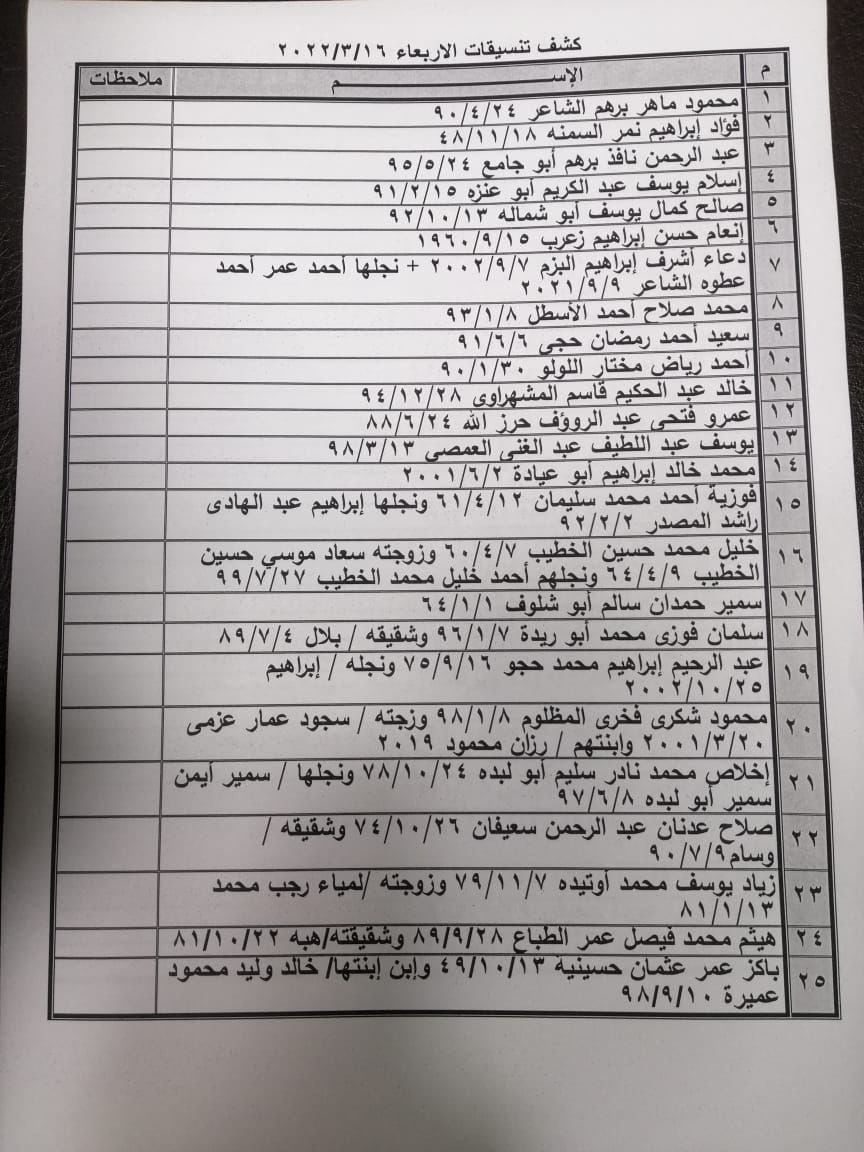 كشف تنسيقات الاربعاء ٢٠٢٢/٣/١٦
م الإســـــــــم ملاحظات
١ محمود ماهر برهم الشاعر ٩٠/٤/٢٤
٢ فؤاد إبراهيم نمر السمنه ٤٨/١١/١٨
٣ عبد الرحمن نافذ برهم أبو جامع ٩٥/٥/٢٤
٤ إسلام يوسف عبد الكريم أبو عنزه ٩١/٢/١٥
٥ صالح كمال يوسف أبو شماله ٩٢/١٠/١٣
٦ إنعام حسن إبراهيم زعرب ١٩٦٠/٩/١٥
٧ دعاء أشرف إبراهيم البزم ٢٠٠٢/٩/٧ + نجلها أحمد عمر أحمد
عطوه الشاعر ٢٠٢١/٩/٩
٨ محمد صلاح أحمد الأسطل ٩٣/١/٨
٩ سعيد أحمد رمضان حجى ٩١/٦/٦
١٠ أحمد رياض مختار اللولو ٩٠/١/٣٠
١١ خالد عبد الحكيم قاسم المشهراوى ٩٤/١٢/٢٨
١٢ عمرو فتحى عبد الرووف حرز الله ٨٨/٦/٢٤
١٣ يوسف عبد اللطيف عبد الغنى العمصى ٩٨/٣/١٣
١٤ محمد خالد إبراهيم أبو عيادة ٢٠٠١/٦/٢
١٥ فوزية أحمد محمد سليمان ٦١/٤/١٢ ونجلها إبراهيم عبد الهادى
راشد المصدر ٩٢/٢/٢
١٦ خليل محمد حسين الخطيب ٦٠/٤/٧ وزوجته سعاد موسي حسين
الخطيب ٦٤/٤/٩ ونجلهم أحمد خليل محمد الخطيب ٩٩/٧/٢٧
١٧ سمير حمدان سالم أبو شلوف ٦٤/١/١
١٨ سلمان فوزى محمد أبو ريدة ٩٦/١/٧ وشقيقه / بلال ٨٩/٧/٤
١٩ عبد الرحيم إبراهيم محمد حجو ٧٥/٩/١٦ ونجله / إبراهيم
٢٠٠٢/١٠/٢٥
٢٠ محمود شكرى فخرى المظلوم ٩٨/١/٨ وزجته / سجود عمار عزمى
٢٠٠١/٣/٢٠ وابنتهم / رزان محمود ٢٠١٩
٢١ إخلاص محمد نادر سليم أبو لبده ٧٨/١٠/٢٤ ونجلها / سمير أيمن
سمير أبو لبده ٩٧/٦/٨
٢٢ صلاح عدنان عبد الرحمن سعيفان ٧٤/١٠/٢٦ وشقيقه /
وسام٩٠/٧/٩
٢٣ زياد يوسف محمد أوتيده ٧٩/١١/٧ وزوجته /لمياء رجب محمد
٨١/١/١٣
٢٤ هيثم محمد فيصل عمر الطباع ٨٩/٩/٢٨ وشقيقته/هبه ٨١/١٠/٢٢
٢٥ باكز عمر عثمان حسينية ٤٩/١٠/١٣ وإبن إبنتها/ خالد وليد محمود
عميرة ٩٨/٩/١٠